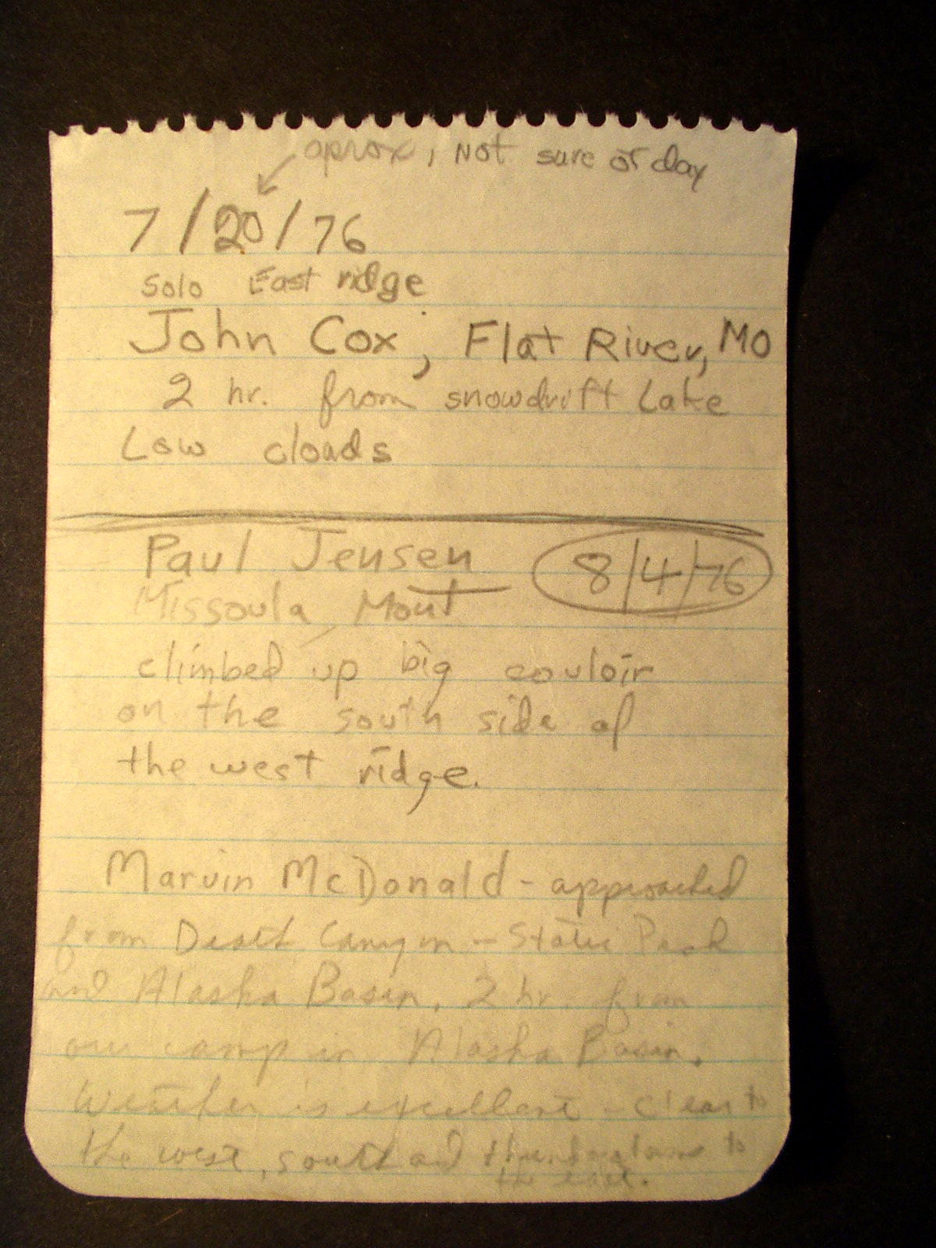 aprox, Not sure of day
7/20/76
Solo East ridge
John Cox, Flat River, MO
2 hr. from snowdrift Lake
Low clouds
Paul Jensen 8/4/76
Missoula, Mont
climbed up big couloir
on the south side of
the west ridge.
Marvin McDonald - approached
from Death Canyon - Static Peak
and Alaska Basin. 2 hr. from
our camp in Alaska Basin.
Weather is excellent - clear to
the west, south and thunderstorms to
the east.